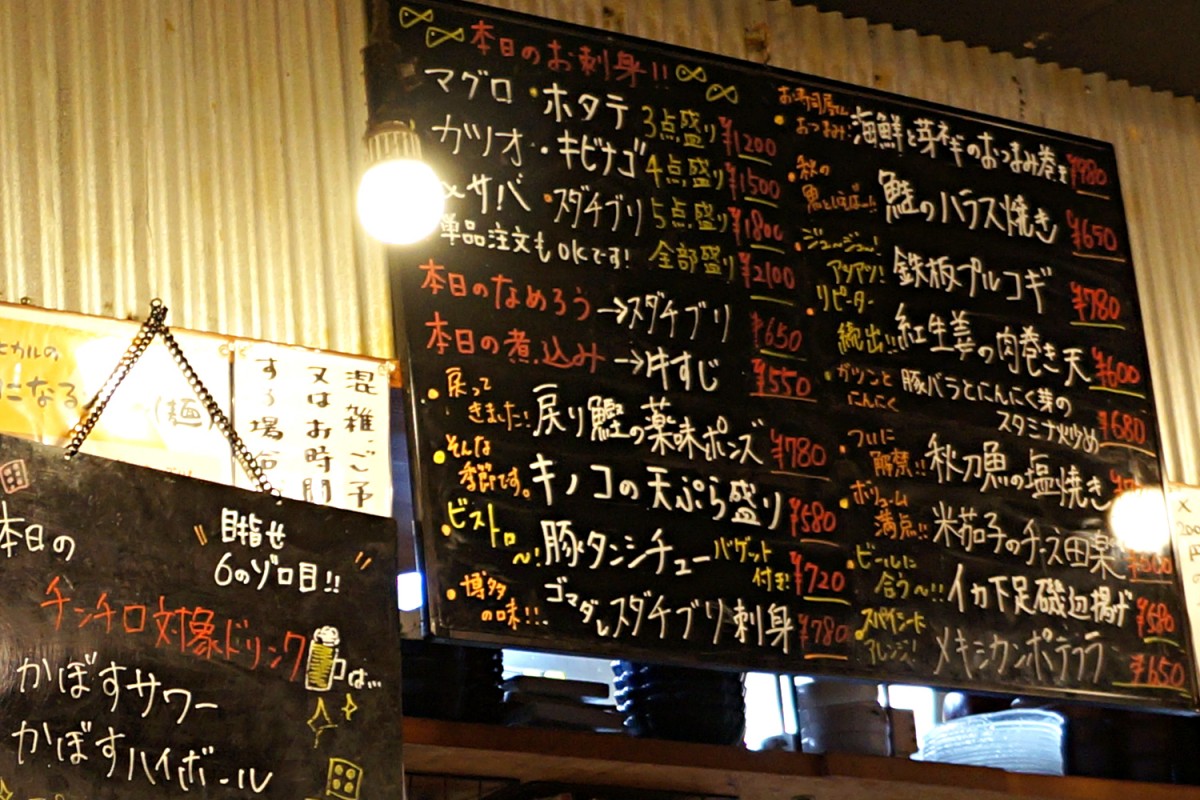 本日のお刺身!!
マグロ・ホタテ 3点盛り ¥1200
ガツオ・キビナゴ 4点盛り ¥1500
〆サバ・スダチブリ 5点盛り ¥1800
単品注文もOKです! 全部盛り ¥2100
本日のなめろう→スダチブリ ¥650
本日の煮込み→牛すじ ¥550
戻ってきました! 戻り鰹の薬味ポンズ ¥780
そんな季節です。 キノコの天ぷら盛り ¥580
ビストロ〜! 豚タンシチュー バゲット付き! ¥720
博多の味!! ゴマダレスダチブリ刺身 ¥780
お寿司屋さんおつまみ! 海鮮と芽ネギのおつまみ巻き ¥980
秋の魚といえば〜!! 鮭のハラス焼き ¥650
ジュージュー!アツアツ! 鉄板プルコギ ¥780
リピーター続出!! 紅生姜の肉巻き天 ¥600
ガツンとにんにく 豚バラとにんにく芽の
スタミナ炒め ¥680
ついに解禁!! 秋刀魚の塩焼き
ボリューム満点!! 米茄子のチーズ田楽
ビールに合う〜!! イカ下足磯辺揚げ ¥580
スパイシードアレンジ! メキシカンポテフラ ¥650
ヒカルの
になる
(麺)
混雑、ご予
又はお時間
する場合
本日の
目指せ
6のゾロ目!!
チンチロ対象ドリンクは...
かぼすサワー
かぼすハイボール